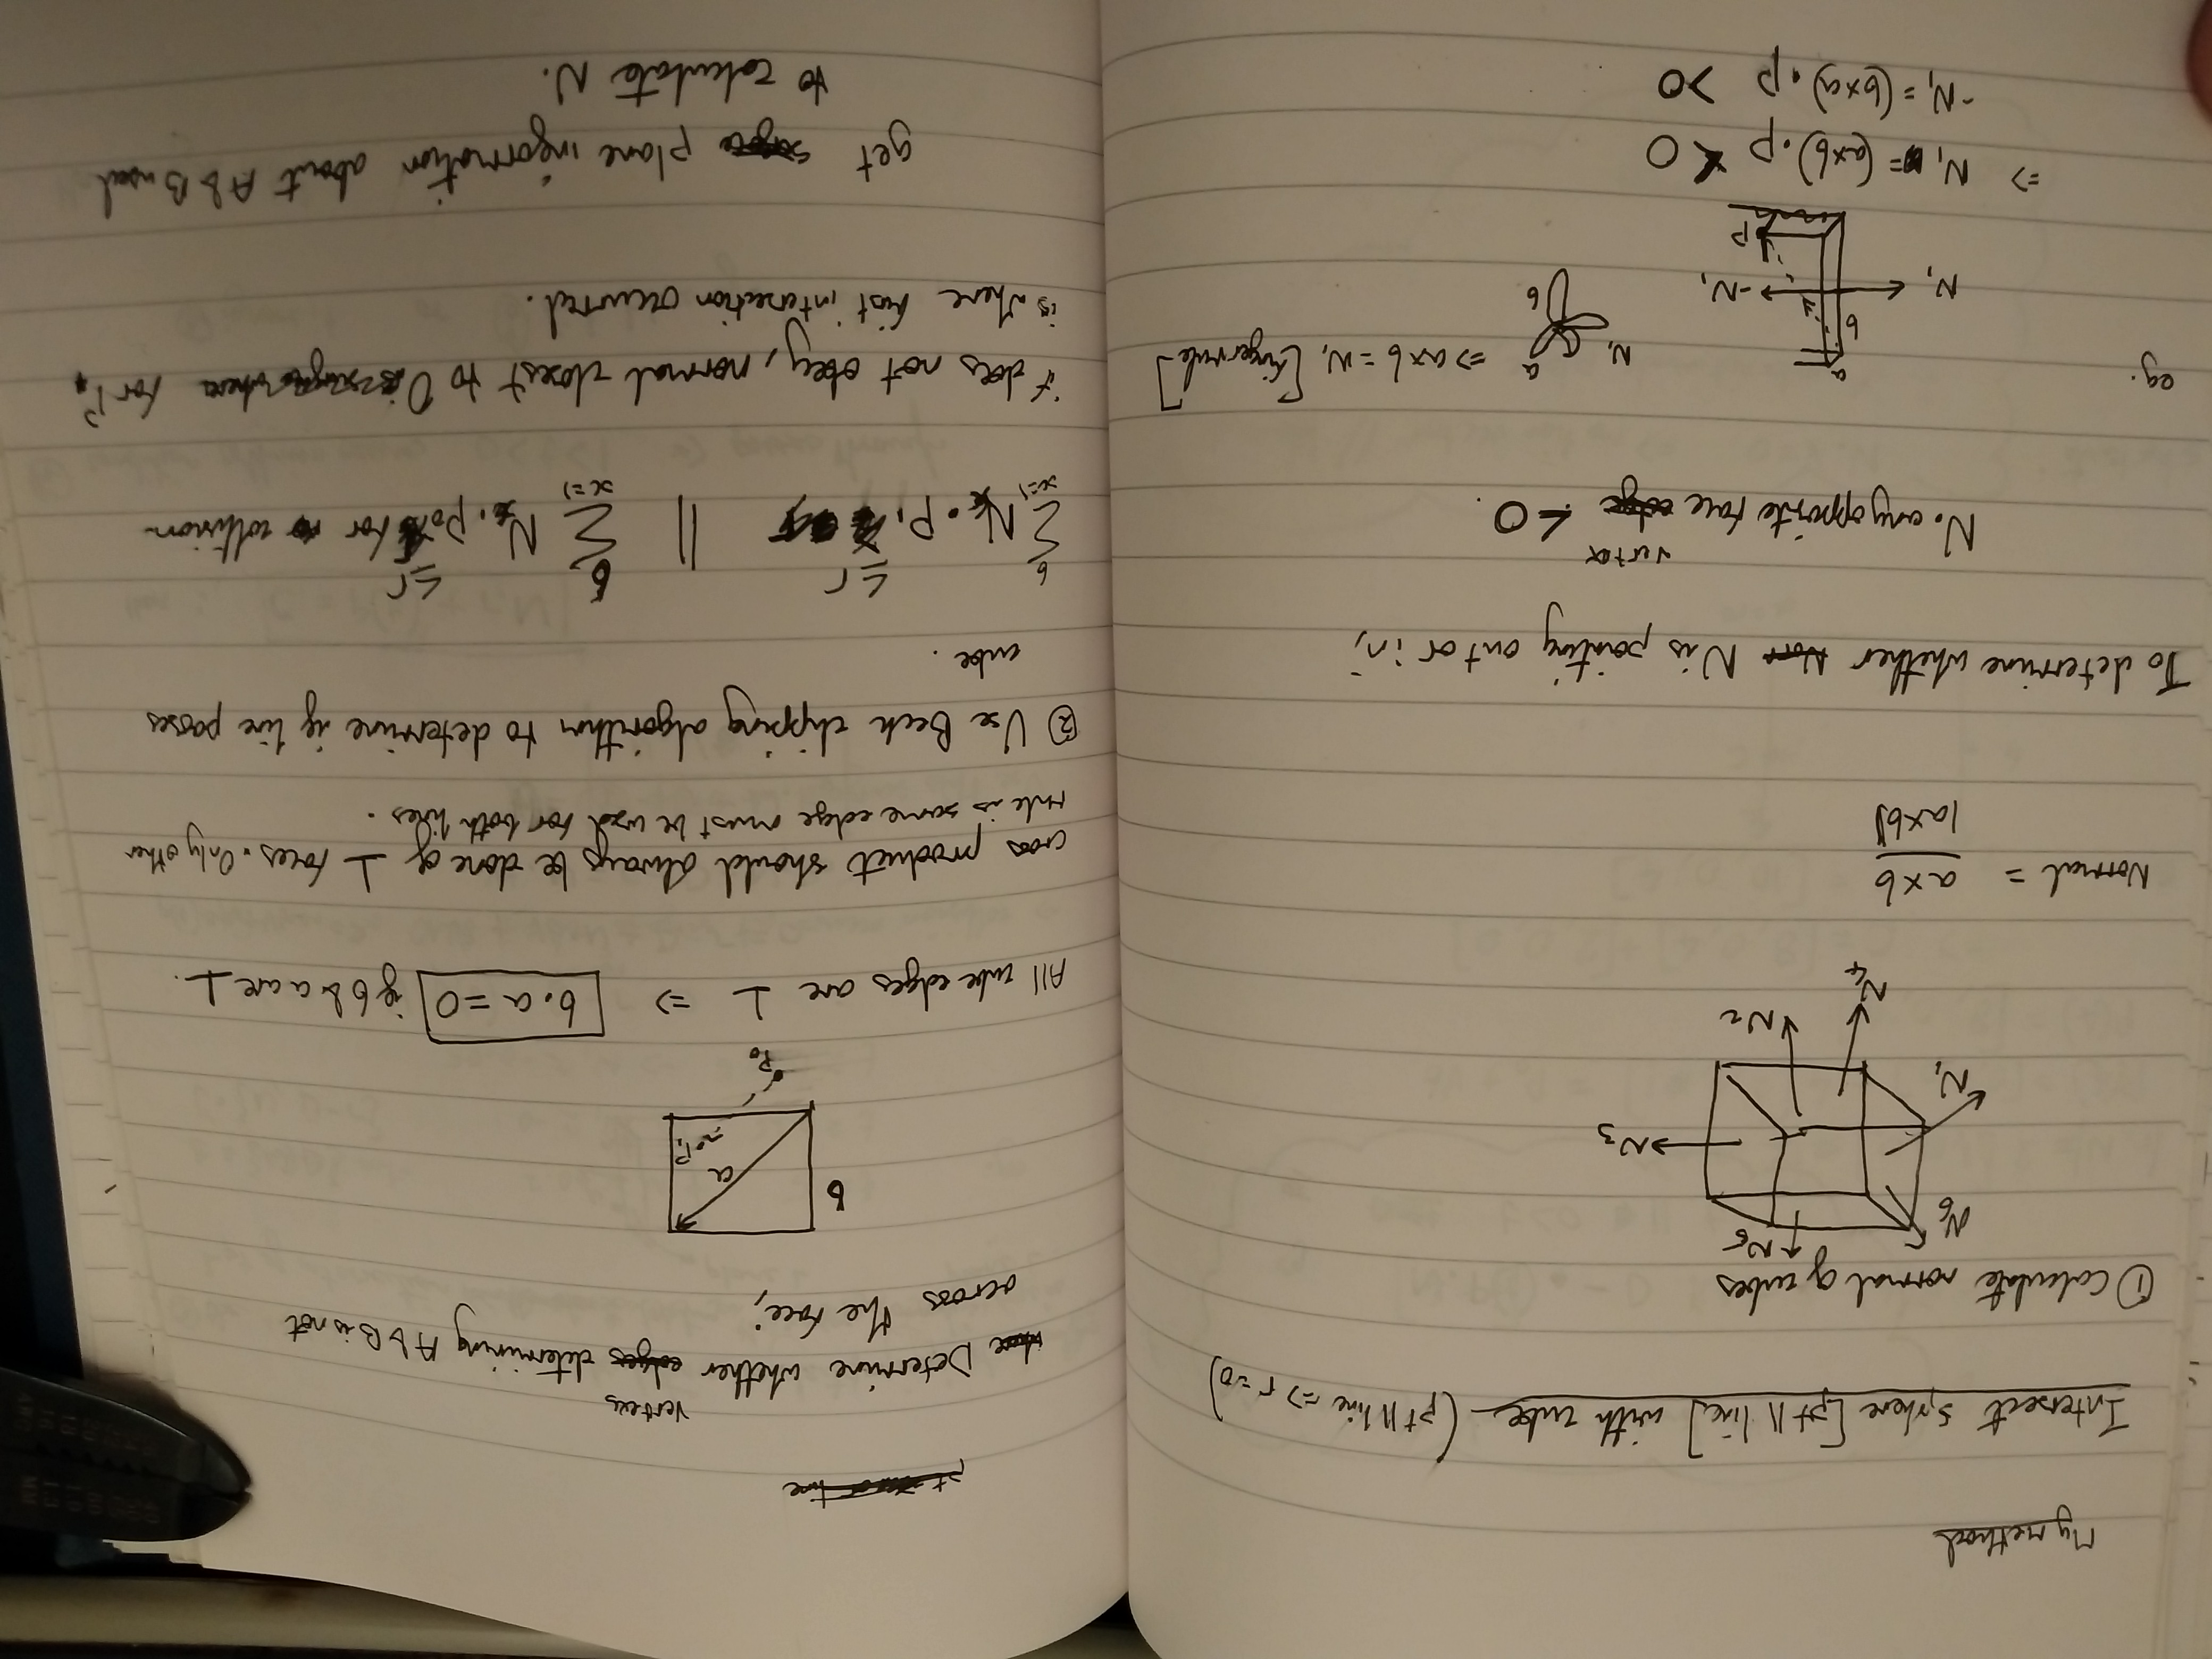 My method
Intersect sphere [pt || line] with cube (pt || line => r=0)
① Calculate normal of cubes
N6
N5
N3
N1
N4
N2
Normal = a×b
|a×b|
To determine whether N is pointing out or in;
vertex
N. any opposite face < 0.
eg.
a
b
N1
-N1
P
N1
a
b
=> a×b = N1 [finger rule]
=> N1 = (a×b).p < 0
-N1 = (b×a).p > 0
pt line
vertexs
Determine whether edges determining A & B is not
across the face;
b
a
P1
P0
All cube edges are ⊥ => b.a=0 if b & a are ⊥.
cross product should always be done of ⊥ faces. Only other
rule is same edge must be used for both lines.
② Use Beck clipping algorithm to determine if line passes
cube.
6 ≤r 6 ≤r
Σ Nx. P1 || Σ Nx. P0 for collision
x=1 x=1
if does not obey, normal closest to 0 for P1
is where first intersection occurred.
get plane information about A & B used
to calculate N.